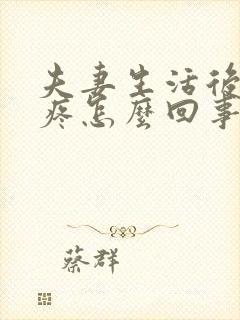 夫妻生活後
疼怎麼回事
蔡群